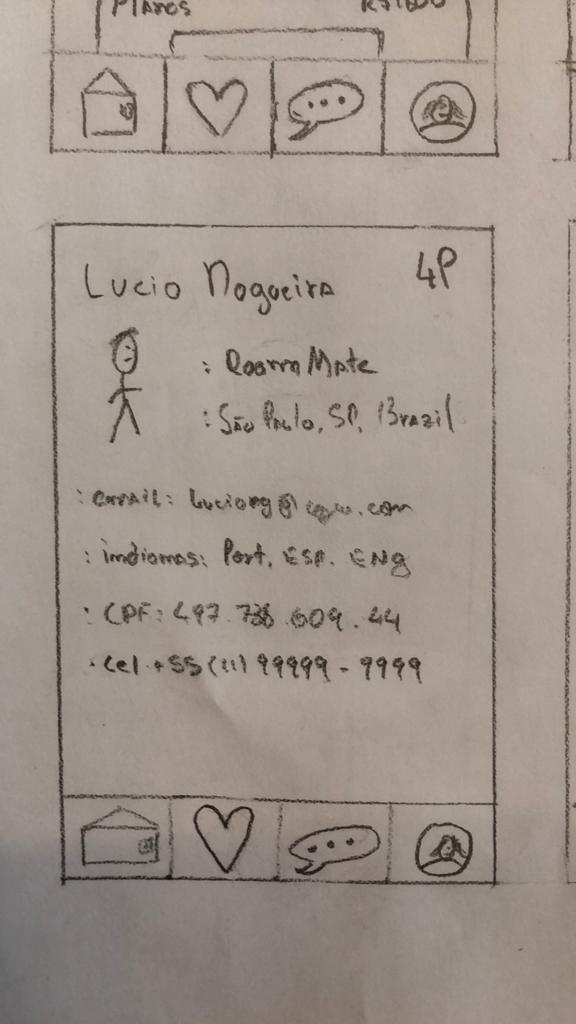 Planos
Lucio Nogueira
4P
: RoomMate
: São Paulo, SP, Brazil
: email: .com
: imdiomas: Port. ESP. ENg
: CPF: 497.738.609.44
. Cel +55 (11) 99999-9999